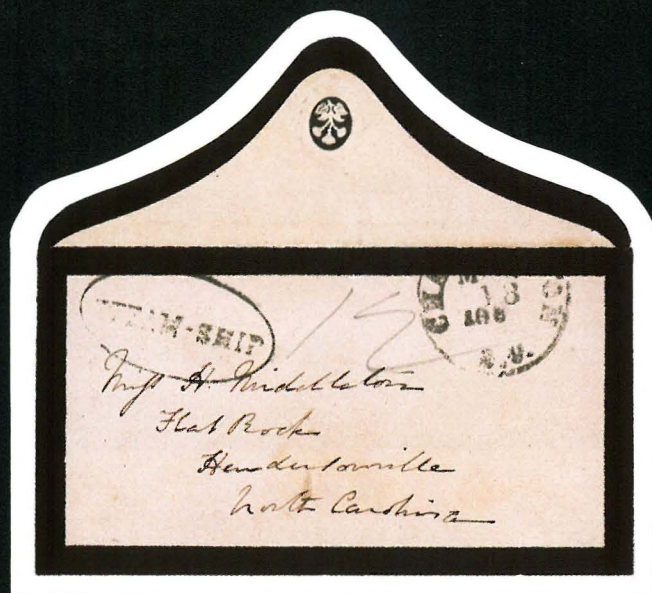 STEAM-SHIP
18
Miss H. Middleton
Flat Rock
Hendersonville
North Carolina